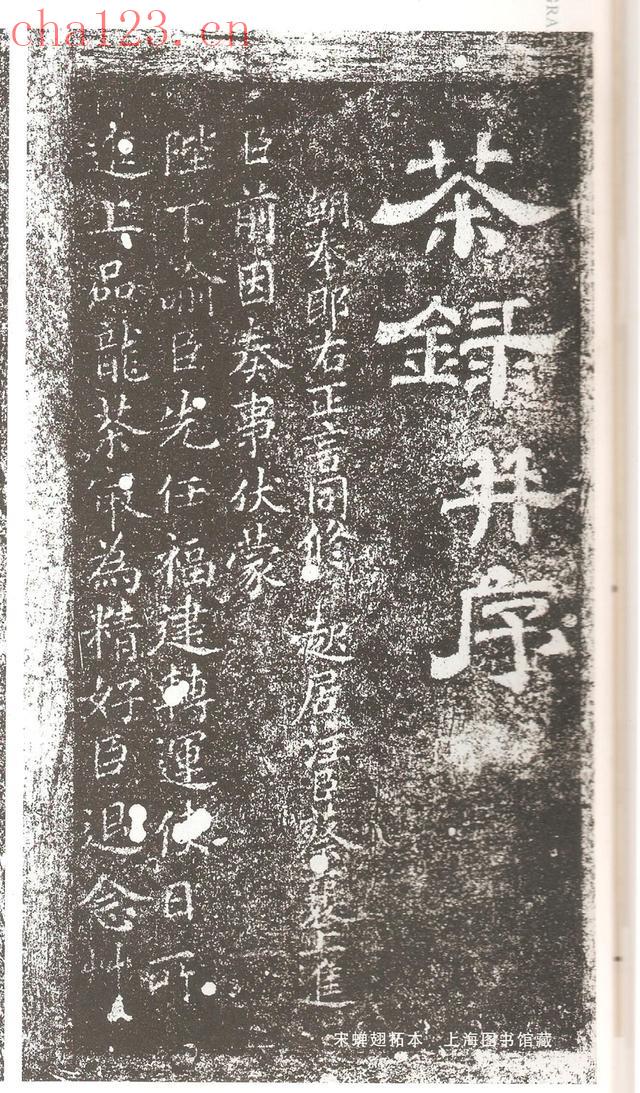 cha123.cn
GRA
茶録并序
朝奉郎右正言同修起居注臣蔡襄上進
臣前因奏事伏蒙
陛下諭臣先任福建轉運使日所
進上品龍茶最為精好臣退念艸
宋蝉翅拓本 上海图书馆藏